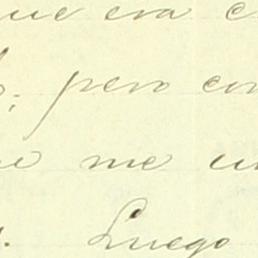 que era
; pero con
me
. Luego